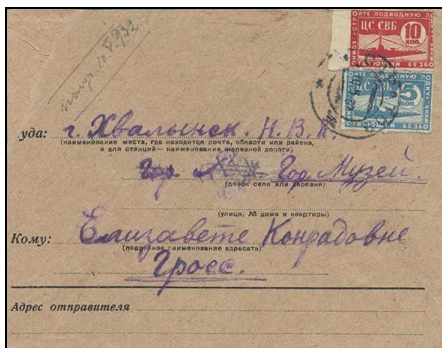 ЦС СВБ 10 КОП.
ЦС СВБ 5 КОП.
уда: г. Хвалынск. Н. В. К.
(наименование места, где находится почта, области или района,
а для станций — наименование железной дороги)
Гор. Музей.
(район, село или деревня)
(улица, № дома и квартиры)
Кому: Елизавете Конрадовне
(подробное наименование адресата)
Гросс.
Адрес отправителя